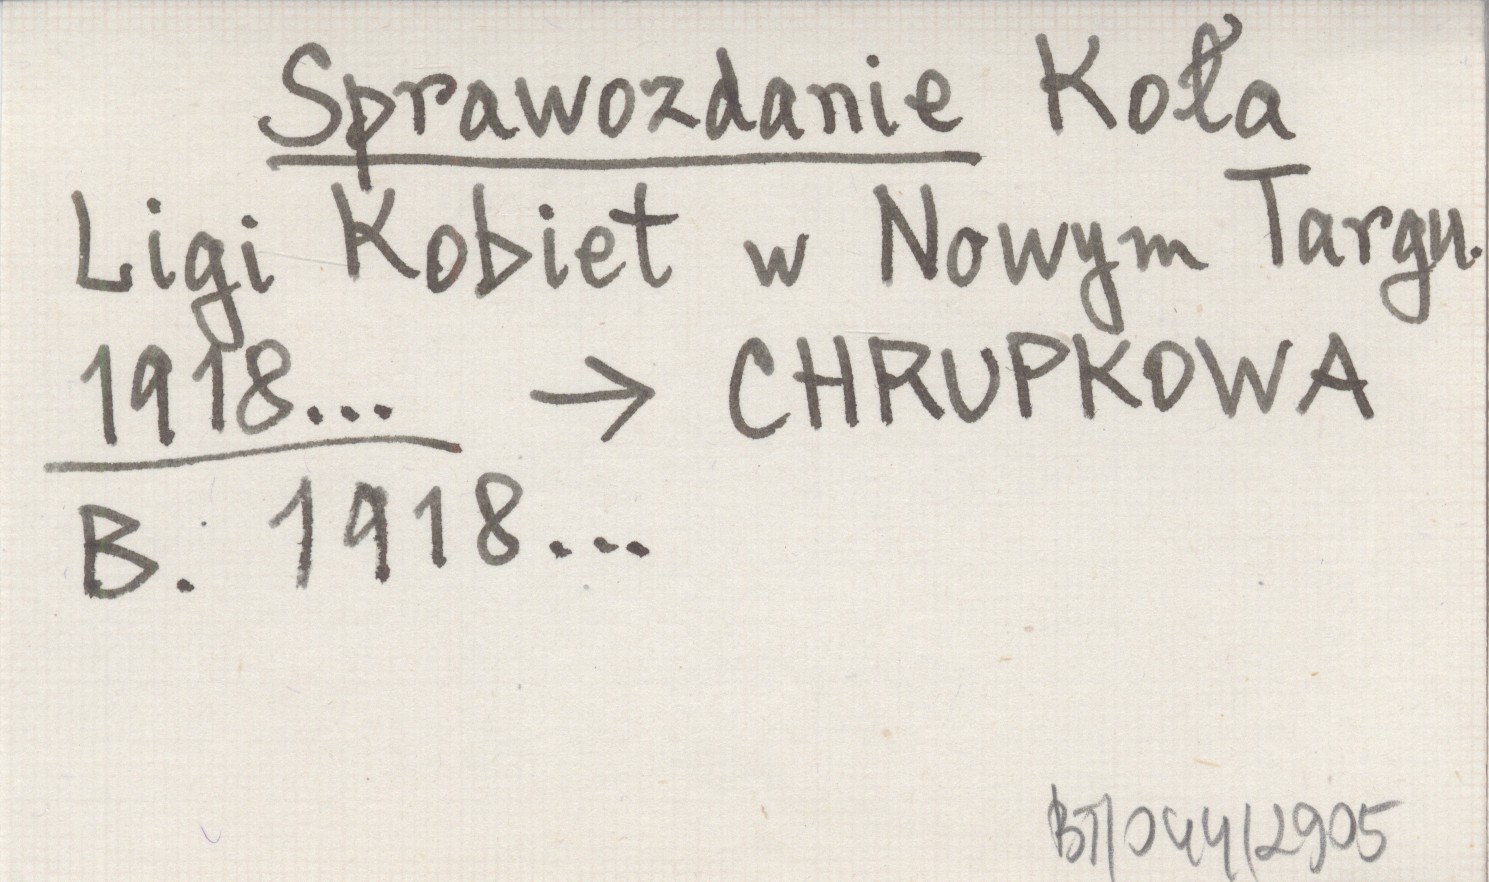 Sprawozdanie Koła
Ligi Kobiet w Nowym Targu.
1918... → CHRUPKOWA
B. 1918...
BT/044/2905